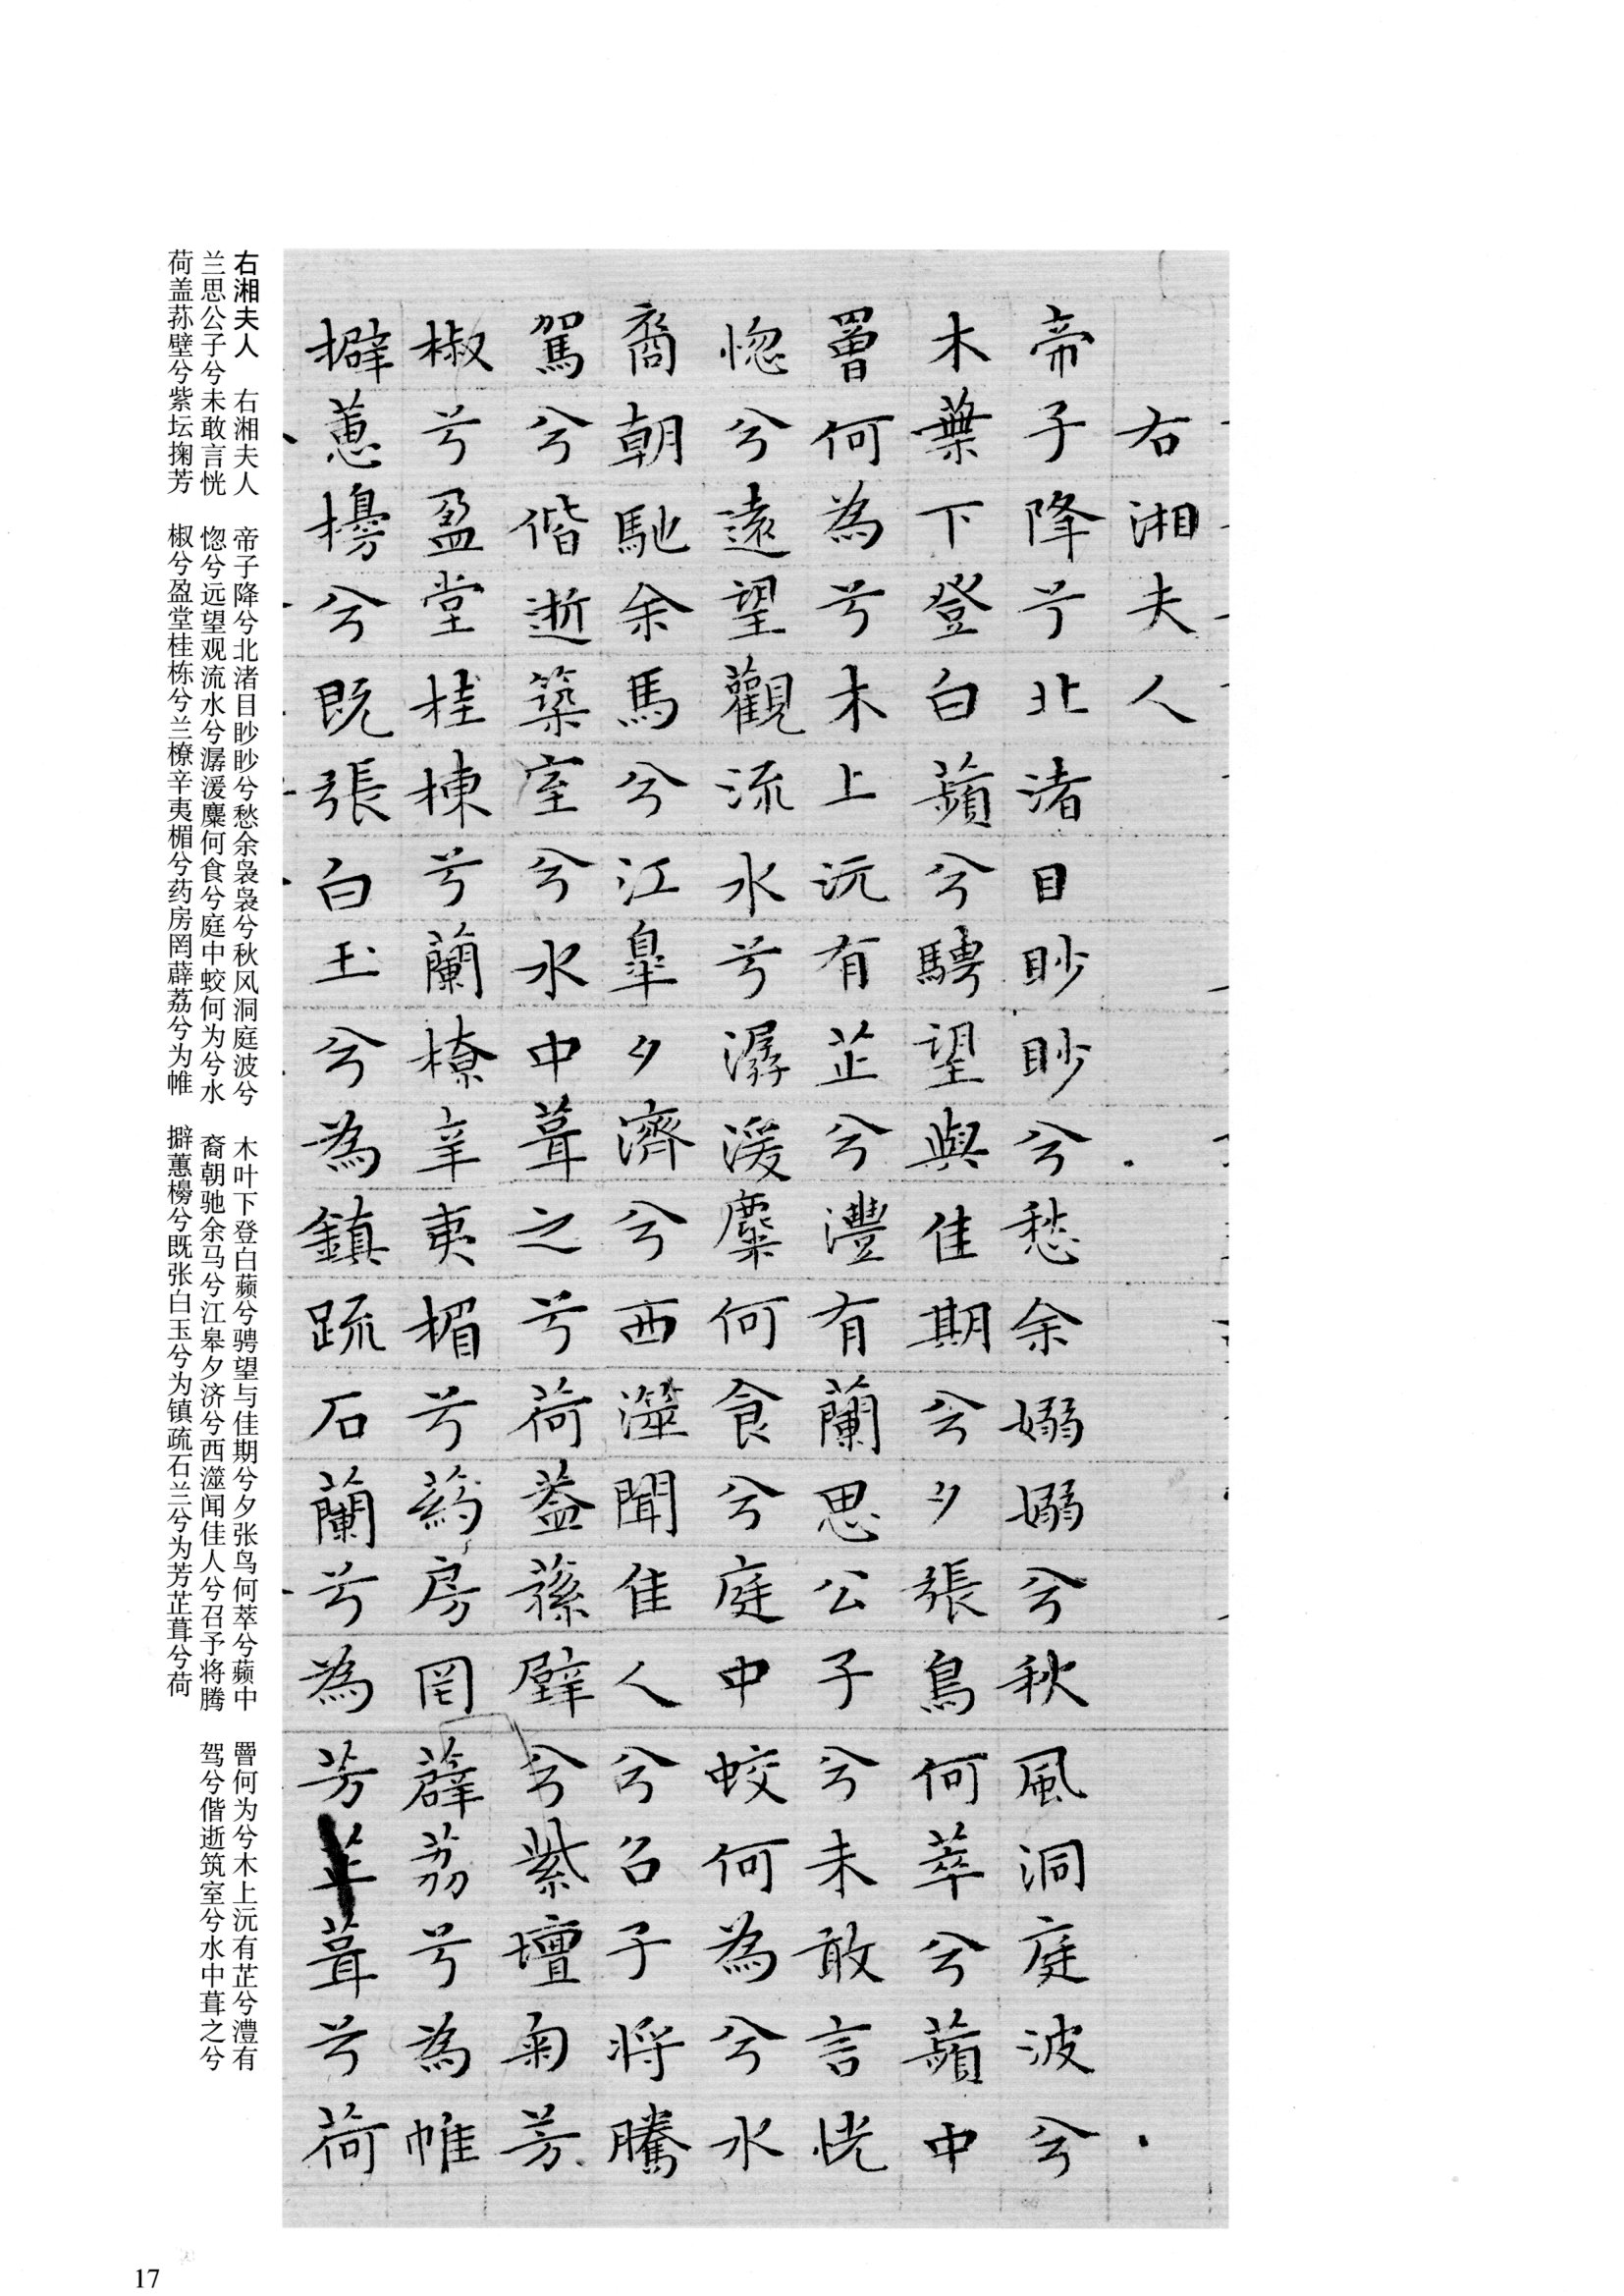 右湘夫人
帝子降兮北渚目眇眇兮愁余嫋嫋兮秋風洞庭波兮
木葉下登白蘋兮騁望與佳期兮夕張鳥何萃兮蘋中
罾何為兮木上沅有芷兮灃有蘭思公子兮未敢言恍
惚兮遠望觀流水兮潺湲麋何食兮庭中蛟何為兮水
裔朝馳余馬兮江皐夕濟兮西澨聞佳人兮召予將騰
駕兮偕逝築室兮水中葺之兮荷蓋蓀壁兮紫壇匊芳
椒兮盈堂桂棟兮蘭橑辛夷楣兮葯房罔薜荔兮為帷
擗蕙櫋兮既張白玉兮為鎮疏石蘭兮為芳芷葺兮荷
右湘夫人　右湘夫人　帝子降兮北渚目眇眇兮愁余袅袅兮秋风洞庭波兮　木叶下登白蘋兮骋望与佳期兮夕张鸟何萃兮蘋中　罾何为兮木上沅有芷兮澧有
兰思公子兮未敢言恍　惚兮远望观流水兮潺湲麋何食兮庭中蛟何为兮水　裔朝驰余马兮江皋夕济兮西澨闻佳人兮召予将腾　驾兮偕逝筑室兮水中葺之兮
荷盖荪壁兮紫坛掬芳　椒兮盈堂桂栋兮兰橑辛夷楣兮药房罔薜荔兮为帷　擗蕙櫋兮既张白玉兮为镇疏石兰兮为芳芷葺兮荷
17